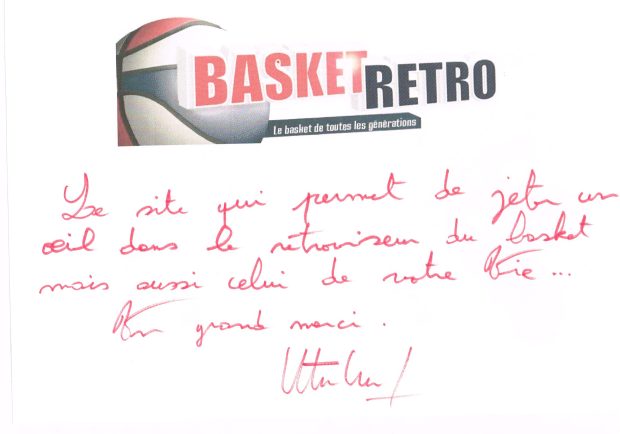 BASKET RETRO
Le basket de toutes les générations
Le site qui permet de jeter un
œil dans le rétroviseur du basket
mais aussi celui de votre Vie ...
Un grand merci.